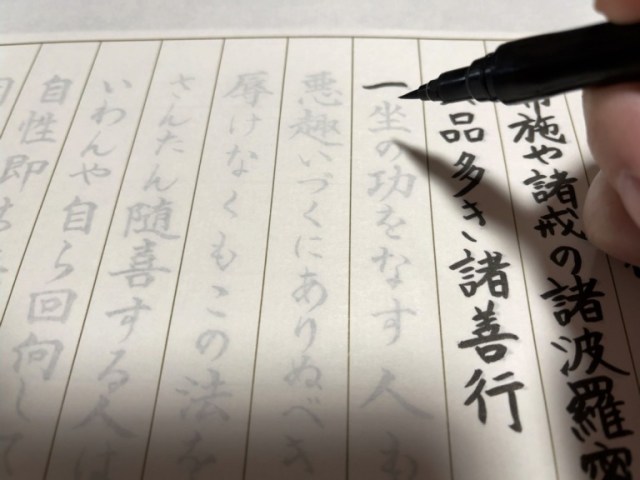 布施や諸戒の諸波羅密
品多き諸善行
一坐の功をなす人も
悪趣いづくにありぬべき
辱けなくもこの法を
さんたん随喜する人は
いわんや自ら回向して
自性即